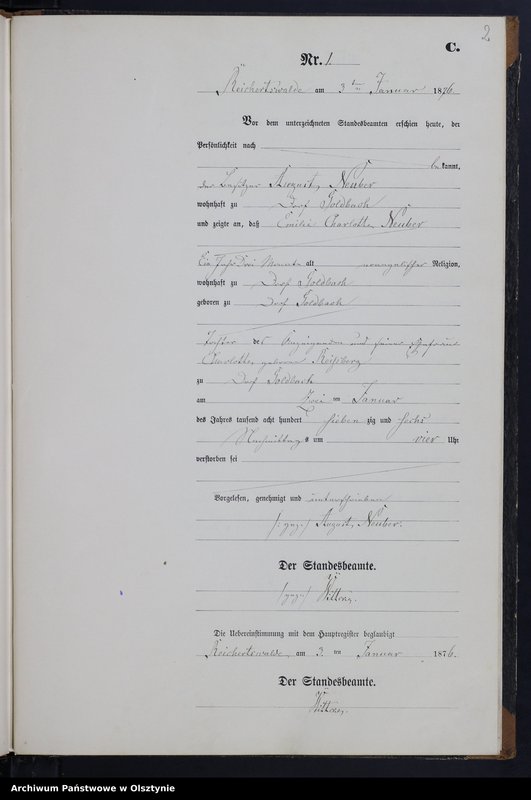 2
C.
Nr. 1.
Reichertswalde am 3ten Januar 1876.
Vor dem unterzeichneten Standesbeamten erschien heute, der
Persönlichkeit nach
bekannt,
der Besitzer August Neuber
wohnhaft zu Dorf Goldbach
und zeigte an, daß Emilie Charlotte Neuber
Ein Jahr drei Monate alt evangelischer Religion,
wohnhaft zu Dorf Goldbach
geboren zu Dorf Goldbach
Tochter des Anzeigenden und seiner Ehefrau
Charlotte, geborene
zu Dorf Goldbach
am Zwei ten Januar
des Jahres tausend acht hundert sieben zig und sechs
Nachmittags um vier Uhr
verstorben sei
Vorgelesen, genehmigt und unterschrieben
(gez.) August Neuber.
Der Standesbeamte.
(gez.)
Die Uebereinstimmung mit dem Hauptregister beglaubigt
Reichertswalde, am 3. ten Januar 1876.
Der Standesbeamte.
Archiwum Państwowe w Olsztynie